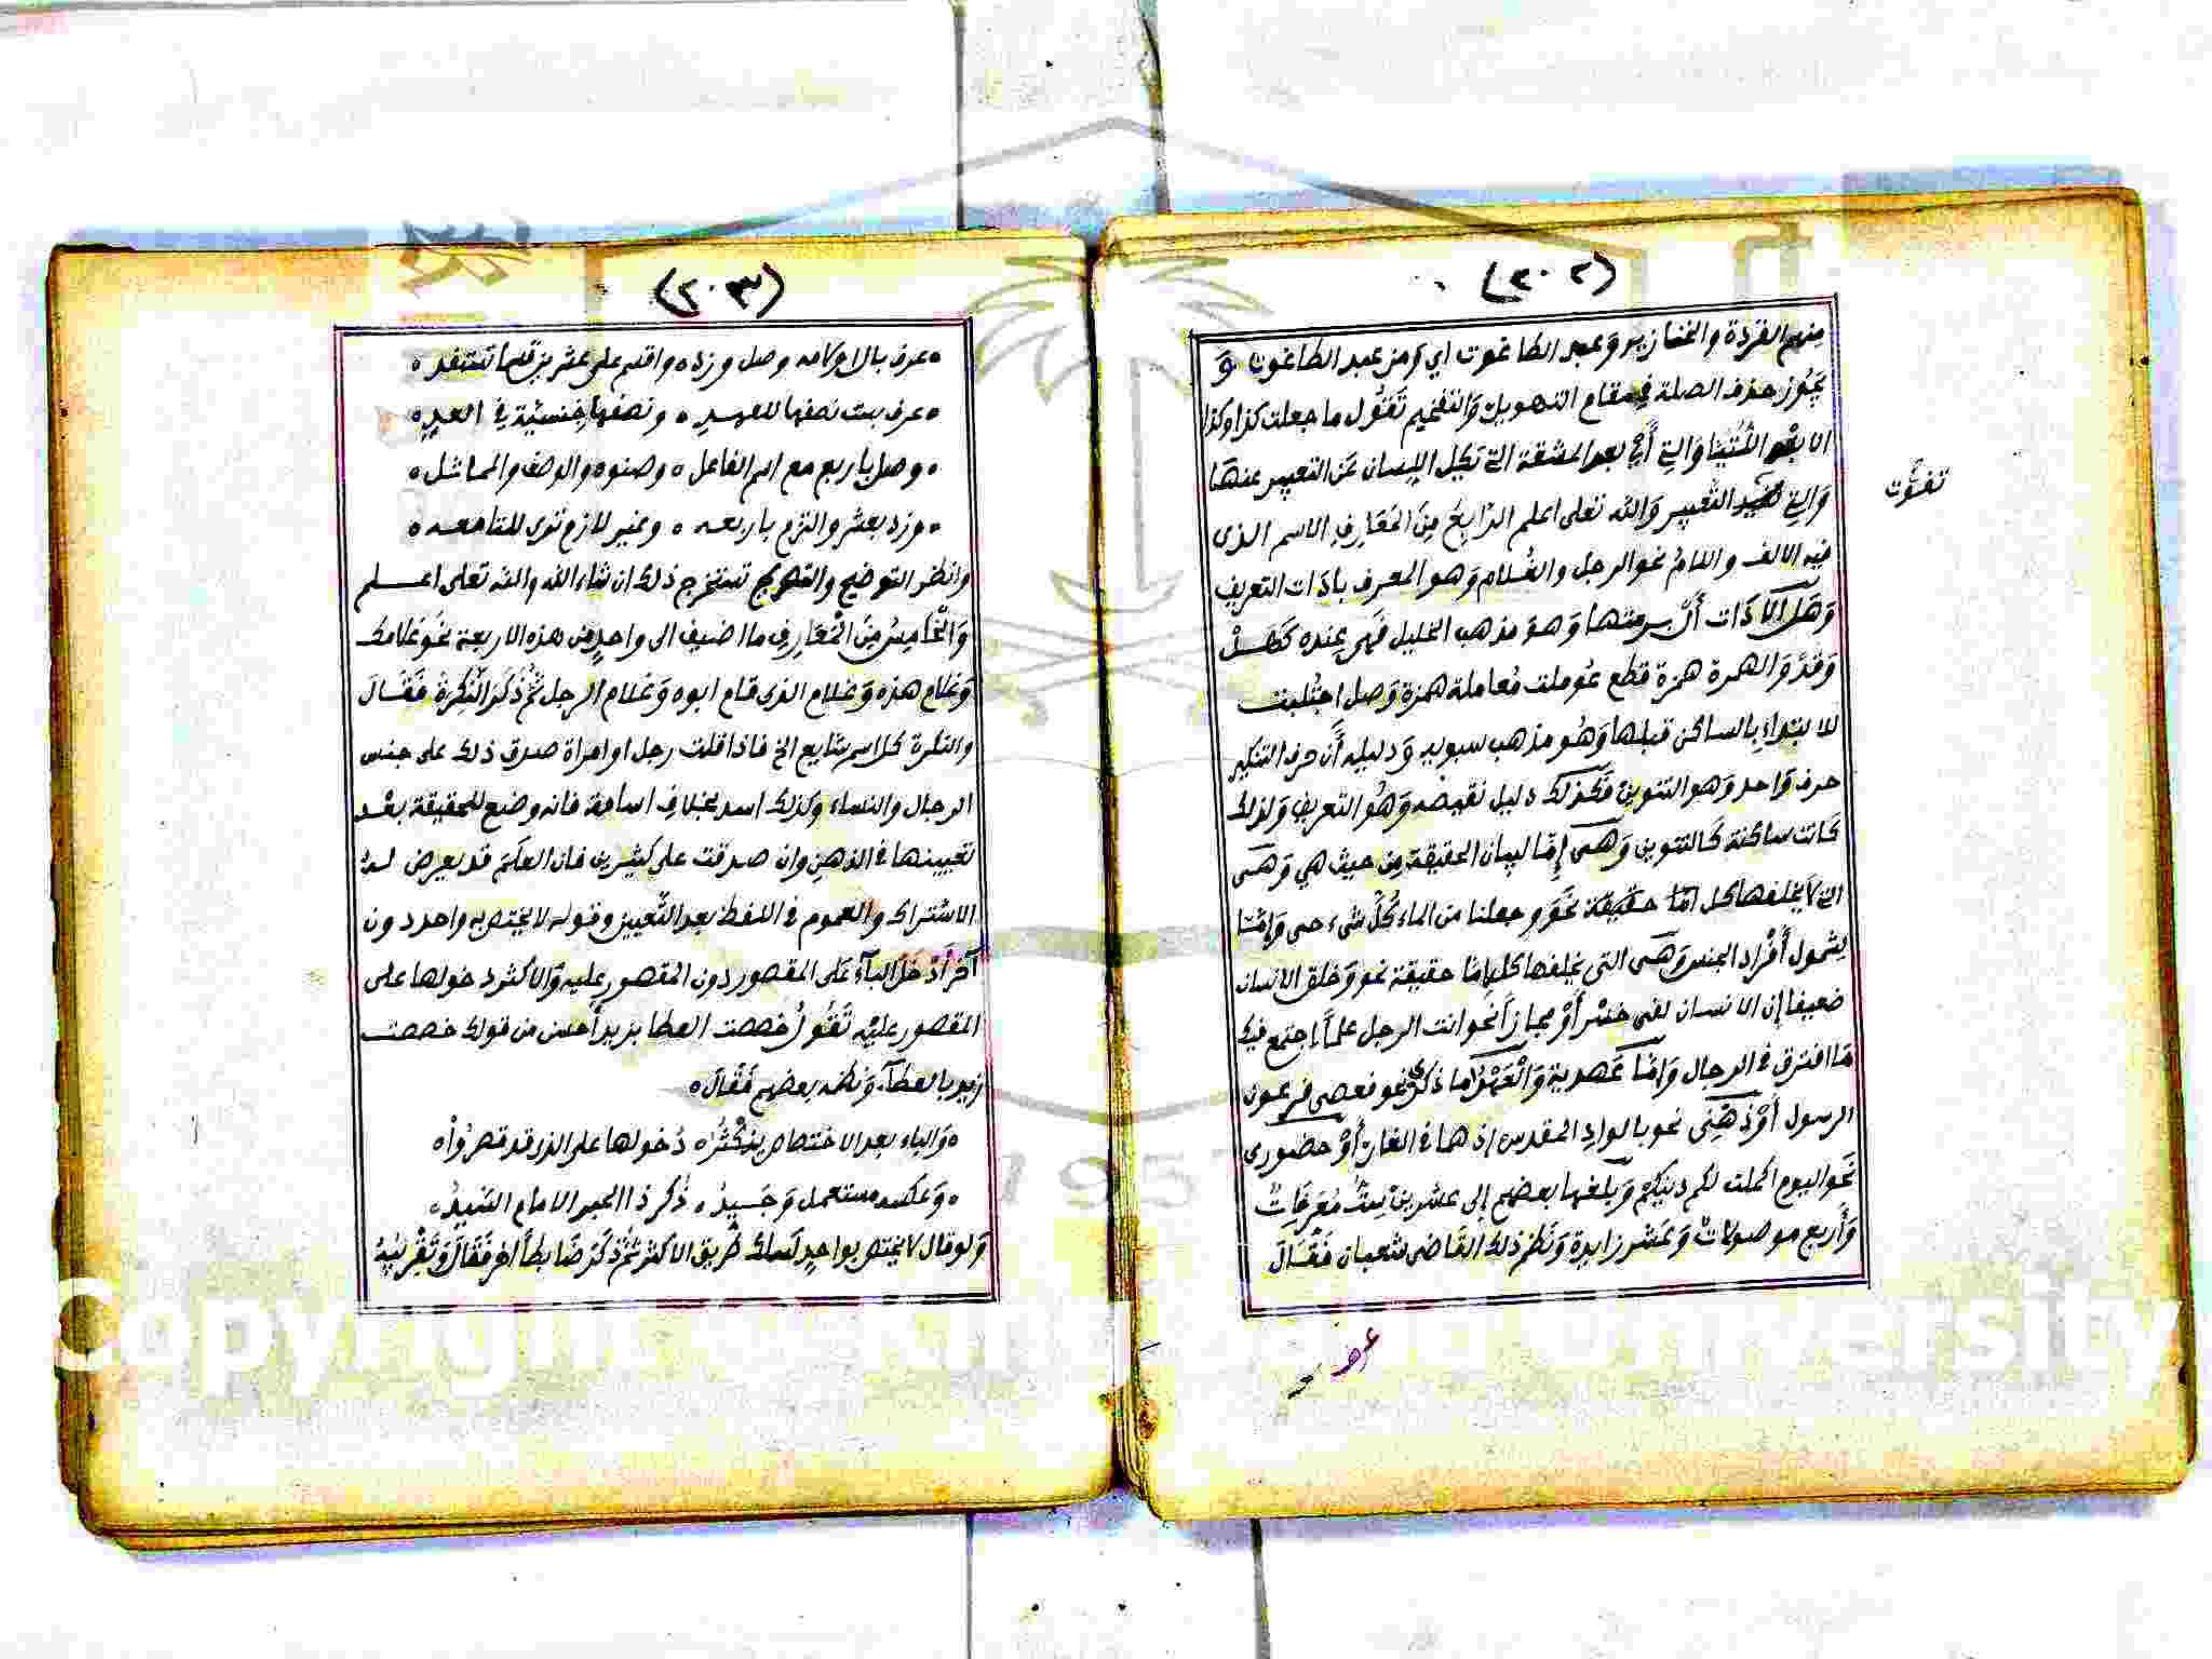 (٢٠٢)
منهم القردة والخنازير وعبد الطاغوت اي ومن عبد الطاغوت و
يَجُوز حذف الصلة في مقام التهويل والتفخيم تَقُول ما جعلت كذا وكذا
الا بعد اللُّتَيَّا وَالتي أَي بعد المشقة التي تكِل اللِّسان عَن التعبير عنها
وَالتي التعبير وَالله تعلى اعلم الرّابِعُ مِنَ المَعَارِفِ الاسم الذى
فيه الالف واللامُ نحو الرجل والغُلام وَهو المعرف بادَات التعريف
وَهَل الاَدَات أَل برمتها وَهوَ مذهب الخليل فهي عنده كَهَلْ
وَقَدْ وَالهمزة همزة قطع عُوملت مُعاملة همزة وَصل اجتُلبت
للابتداء بالساكن قبلها وَهُو مذهب سبويه وَدليله أَن حرف التنكير
حرف وَاحد وَهو التنوين فَكذلك دليل نقيضه وَهُو التعريف وَلذلك
كَانت ساكنة كَالتنوين وَهى إِمّا لبيان الحقيقة مِن حيث هي وَهى
التي لا يخلفها كل امّا حقيقة نحَو وجعلنا من الماء كُلَّ شىء حى وَإِمّا
لِشمول أَفْراد الجنس وَهى التى يخلفها كل إما حقيقة نحو وَخلق الانسان
ضعيفا إن الانسان لفى خسْر أَوْ مجازاً نحَو انت الرجل علماً اجتمع فيك
مَا افترق في الرجال وَإمّا عَهدية وَالْعَهْدُ اما ذكرى نحو فعصى فرعون
الرسول أَوْ ذهِنِى نحو بالوادِ المقدس إذ هما في الغار أَوْ حضورى
نحَو اليوم اكملت لكم دينكم وَبلغها بعضهم إلى عشرين سِتٌّ مُعَرِفَاتٌ
وَأَربع موصولاتْ وَعَشر زايدة وَنَظم ذلك القَاضى شعبان فَقَالَ
تفوت
عرف
(٢٠٣)
عرف بال اولامه وصل وزده واقسم على عشرين قسما تستفد
عرف بست نصفها للعهدِ ونصفها جنسيّة في العدِ
وصل باربع مع اسم الفاعل وصنوه والوصف والمماثل
وزد بعشر والتزم باربعه وغير لازم توى للتامعه
وانظر التوضيح والتصريح تستخرج ذلك ان شاء الله والله تعلى اعلم
وَالْخَامِسُ مِنَ الْمَعَارِفِ ما اضيف الى واحدٍ من هذه الاربعة نحَو غلامك
وَغلام هذه وَغلام الذى قام ابوه وَغلام الرجل ثُمَّ ذُكَرَ النَّكِرَةَ فَقَالَ
والنكرة كل اسم شايع الخ فاذا قلت رجل او امراة صدق ذلك على جنس
الرجال والنساء وكذلك اسد بخلاف اسامة فانه وضع للحقيقة بعْد
تعيينها في الذهنِ وان صدقت على كثيرين فان العلَمَ قد يعرض لهُ
الاشتراك والعموم في اللفظ بعد التَّعيين وقوله لا يختص به واحد دون
آخرَ أَدْخَلَ البآءَ عَلى المقصور دون المقصور عليه وَالاكثر دخولها على
المقصور عليْه تَقُولُ خصصت العطا بزيد أَحسن من قولك خصصت
زيد بالعطآء وَنظمه بعضهم فَقَالَ
وَالباء بعد الاختصاص يَكْثُرُ دُخولها على الذى قد قصرُواْ
وَعكسه مستعمل وَجَيِّدُ ذُكر ذا الحبر الامام السَّيدُ
وَلو قال لا يختص بواحدٍ لَسلك طَريق الاكثر ثمَّ ذكَرَ ضَابطاً اخر فَقَالَ وَتَقْرِيبُهُ
Copyright © King Saud University
1957